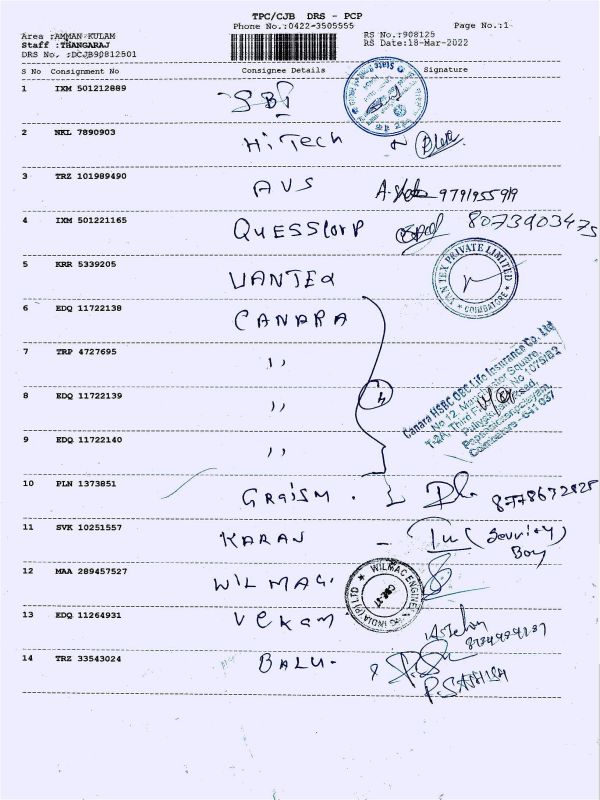 TPC/CJB DRS - PCP
Phone No.:0422-3505555
Page No.:1
Area :AMMAN-KULAM
RS No.:908125
Staff :THANGARAJ
RS Date:18-Mar-2022
DRS No. :DCJB90812501
S No Consignment No Consignee Details Signature
1 IXM 501212889 SBI
2 NKL 7890903 HiTech
3 TRZ 101989490 AVS 9791955919
4 IXM 501221165 QUESSCorp 8073903475
5 KRR 5339205 VANTEX
VAN TEX PRIVATE LIMITED
COIMBATORE
6 EDQ 11722138 CANARA
7 TRP 4727695 ,,
4
Canara HSBC OBC Life Insurance Co. Ltd
No 12, Manchester Square,
8 EDQ 11722139 ,,
9 EDQ 11722140 ,,
Coimbatore - 641 037
10 PLN 1373851 GRaiSM .
11 SVK 10251557 KARAN - (Security)
Boy
12 MAA 289457527 WILMAC.
WILMAC ENGINEERING INDIA (P) LTD
CBE-37
13 EDQ 11264931 Vekam
14 TRZ 33543024 BALU-